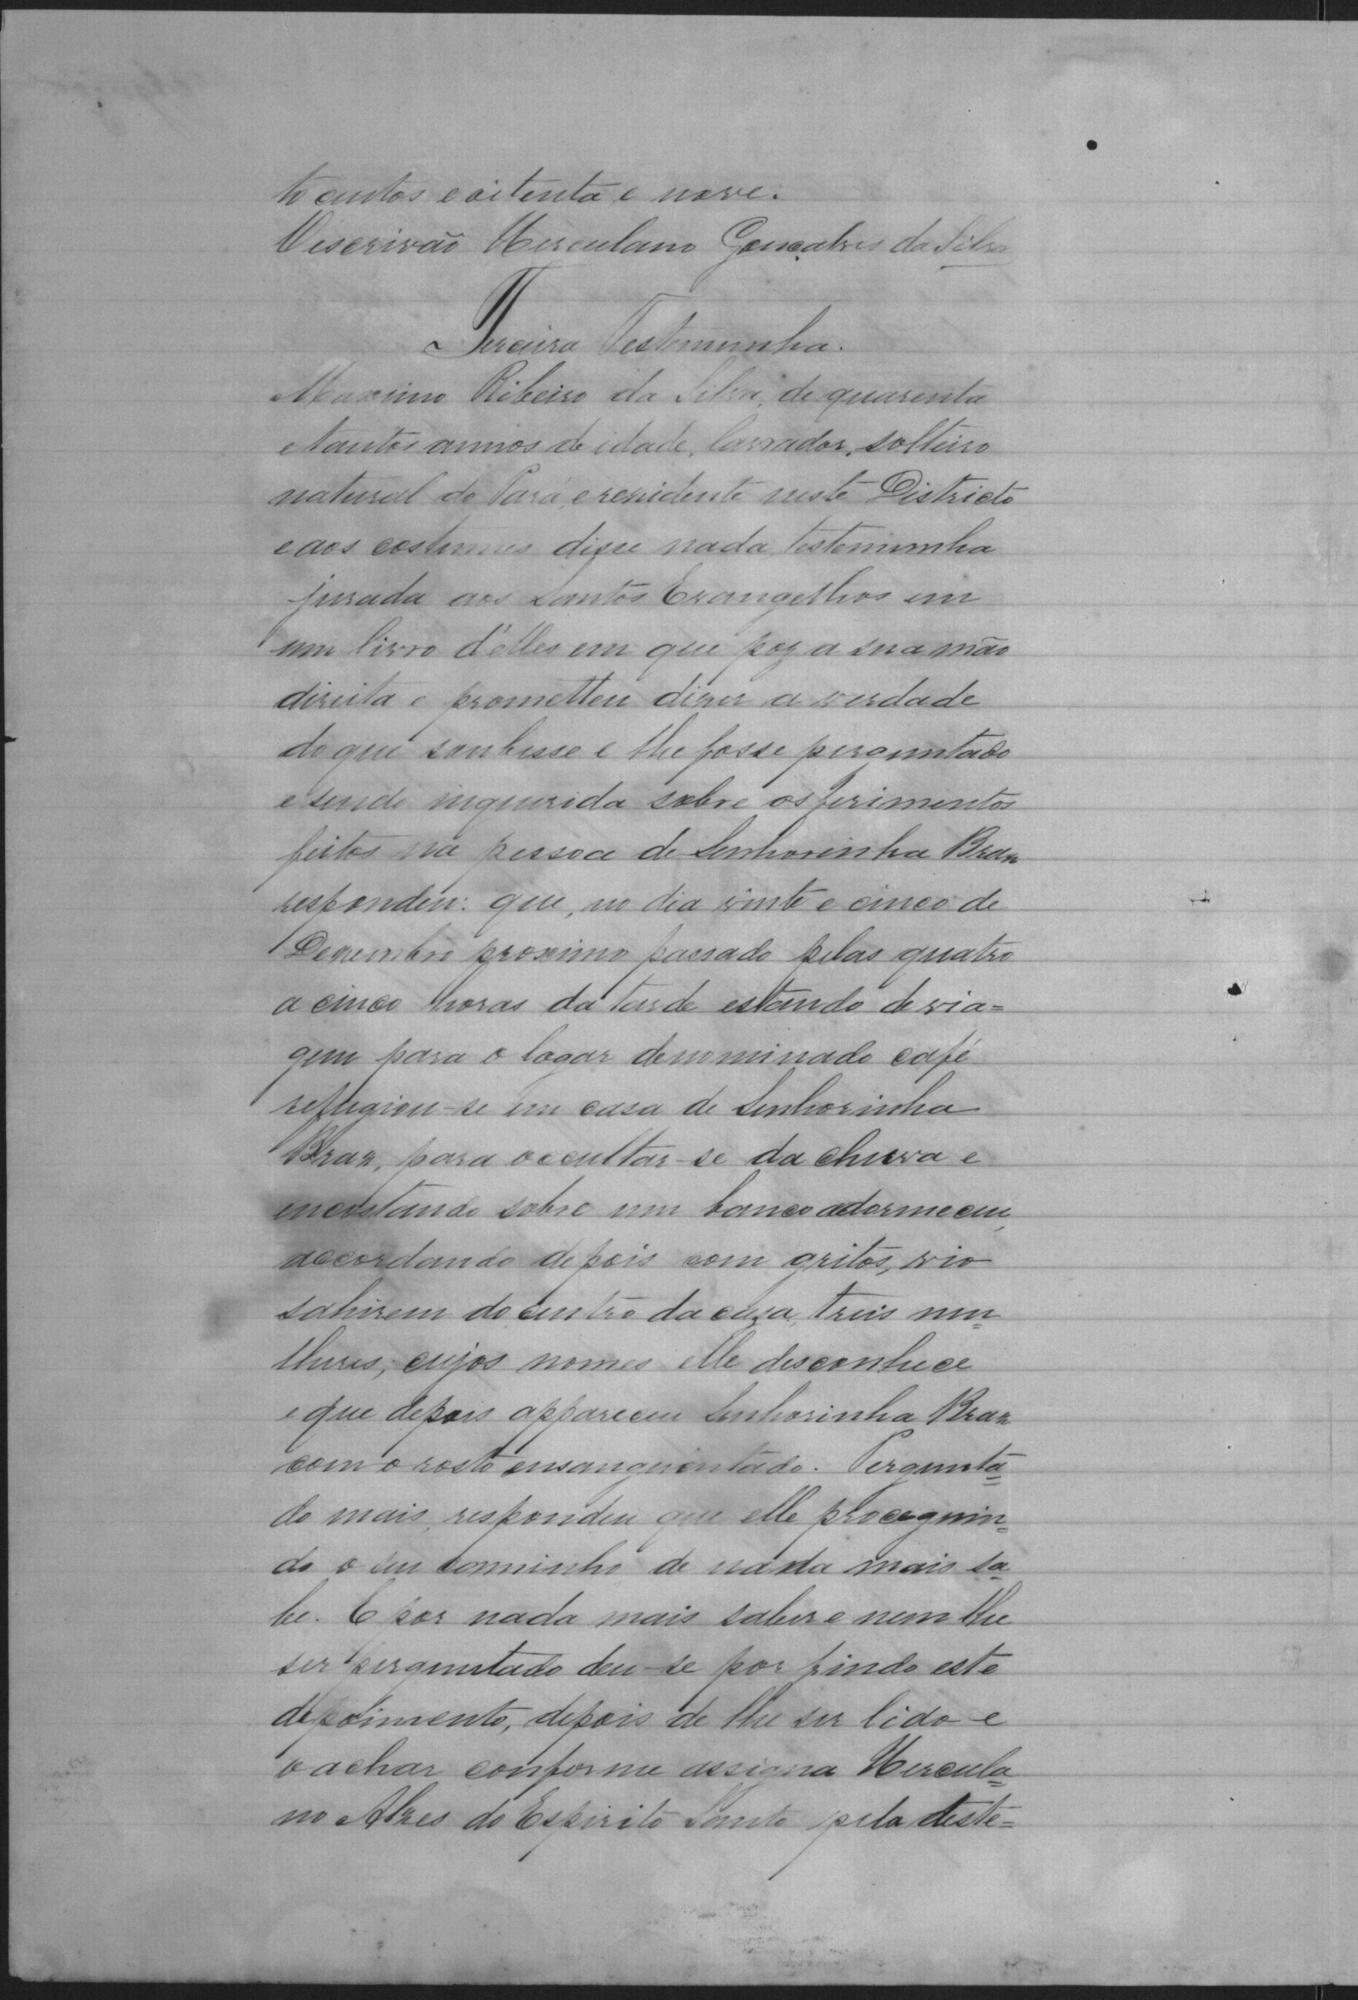 to centos e oitenta e nove.
O escrivão Herculano Gonçalves da Silva
Terceira Testemunha.
Maximo Ribeiro da Silva, de quarenta
e tantos annos de idade, lavrador, solteiro
natural do Pará, e rezidente neste Districto
e aos costumes disse nada, testemunha
jurada aos Santos Evangelhos em
um livro d'elles em que poz a sua mão
direita e prometteu dizer a verdade
do que soubesse e lhe fosse perguntado
e sendo inquerida sobre os ferimentos
feitos na pessoa de Senhorinha Braz
respondeu: que, no dia vinte e cinco de
Dezembro proximo passado pelas quatro
a cinco horas da tarde estando de via=
gem para o logar denominado café
refugiou-se em casa de Senhorinha
Braz, para occultar-se da chuva e
encostando sobre um banco adormeceu,
accordando depois com gritos, vio
sahirem do centro da caza, treis mu=
lheres, cujos nomes elle desconhece
e que depois appareceu Senhorinha Braz
com o rosto ensanguentado. Pergunta=
do mais, respondeu que elle proceguin=
do o seu comminho de nada mais sa=
be. E por nada mais saber e nem lhe
ser perguntado deu-se por findo este
depoimento, depois de lhe ser lido e
o achar conforme assigna Hercula=
no Alves do Espirito Santo pela teste=